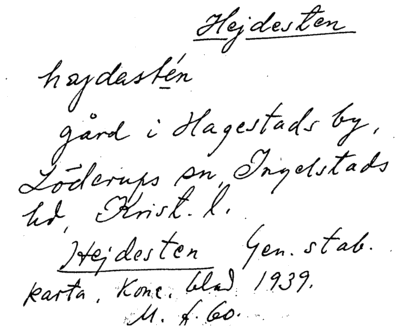 Hejdesten
hæjdastén
gård i Hagestads by,
Löderups sn, Ingelstads
hd, Krist. l.
Hejdesten Gen. stab.
karta, Konc. blad 1939.
M. f. 60.